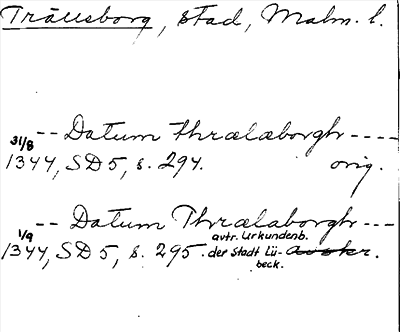 Trälleborg, stad, Malm. l.
-- Datum thrælæborgh ----
31/8 1344, SD 5, s. 294. orig.
-- Datum Thrælaborgh ---
avtr. Urkundenb.
1/9 1344, SD 5, s. 295. der Stadt Lü-
beck.